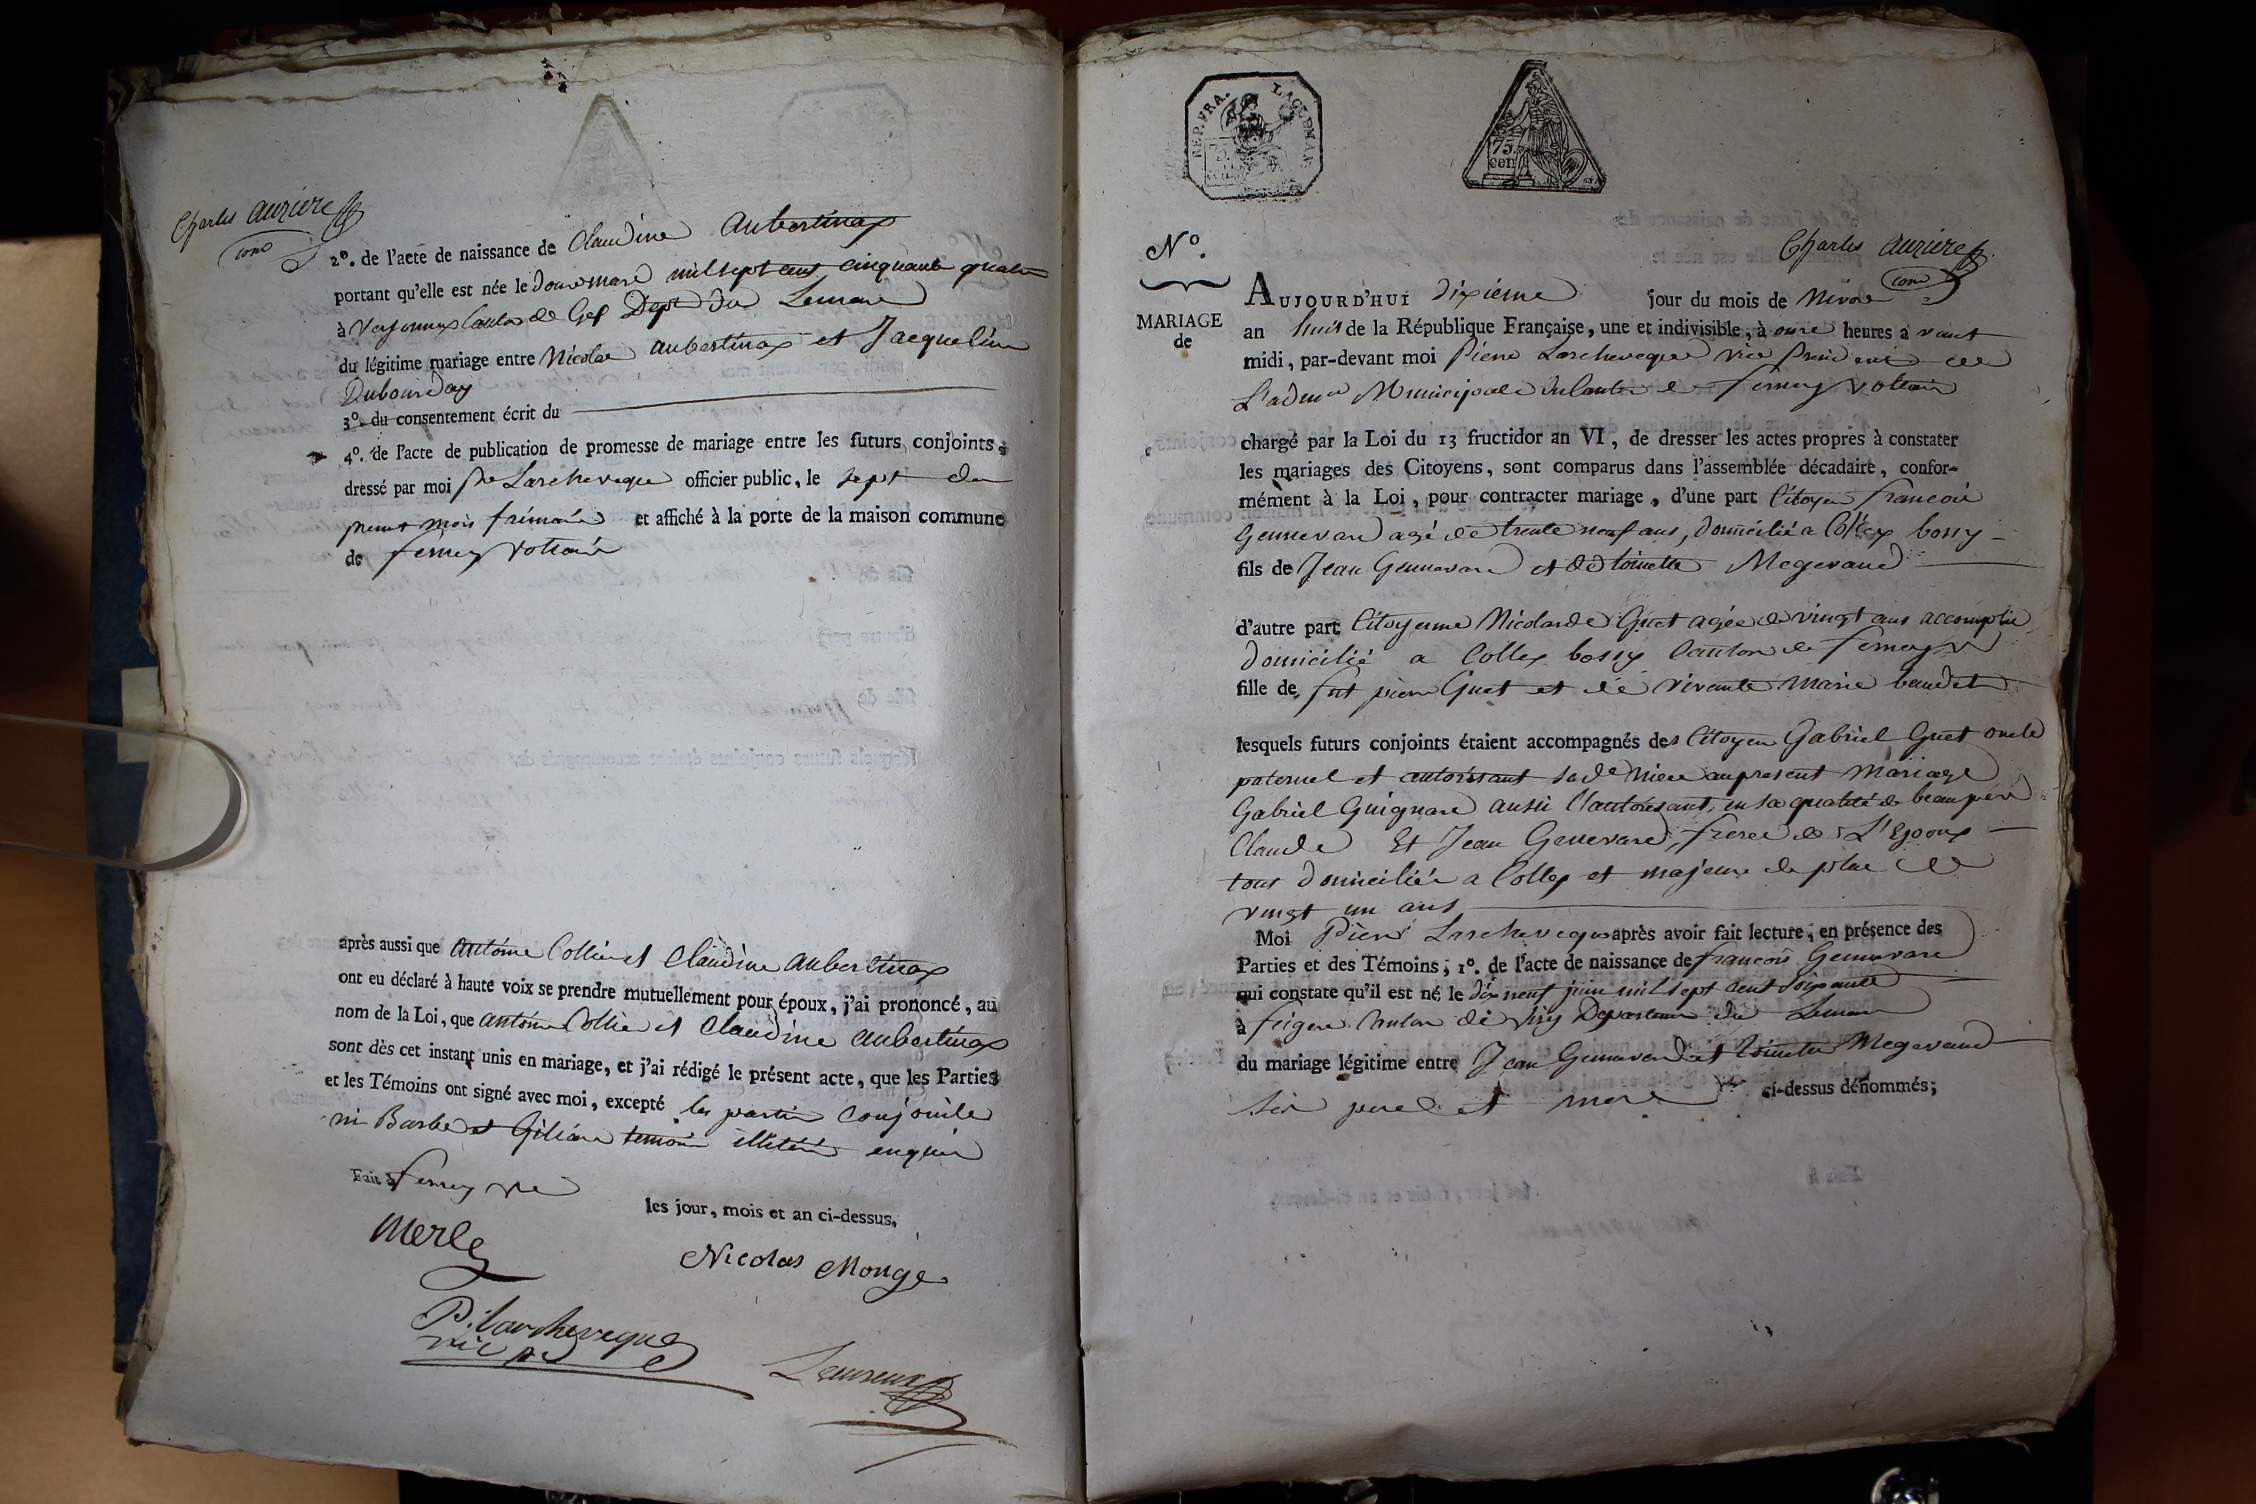 Charles auziere
com
2º. de l'acte de naissance de Claudine aubertinaz
portant qu'elle est née le douze mars mil sept cent cinquante quatre
à Versonnex Canton de Gex Dept du Leman
du légitime mariage entre Nicolas aubertinaz et Jacqueline
3º. du consentement écrit du
4º. de l'acte de publication de promesse de mariage entre les futurs conjoints,
dressé par moi Pre Larcheveque officier public, le sept du
present mois frimaire et affiché à la porte de la maison commune
de ferney voltaire
après aussi que antoine Collier et Claudine aubertinaz
ont eu déclaré à haute voix se prendre mutuellement pour époux, j'ai prononcé, au
nom de la Loi, que antoine Collier et Claudine aubertinaz
sont dès cet instant unis en mariage, et j'ai rédigé le présent acte, que les Parties
et les Témoins ont signé avec moi, excepté les parties conjointe
ni Barbe et temoin enquis
Fait à ferney vre
les jour, mois et an ci-dessus,
Merle
Nicolas Monge
P. Larcheveque
vice pt
REP. FRA.
75 cen
Nº.
Charles auziere
com
MARIAGE
de
AUJOURD'HUI dixieme jour du mois de Nivose
an huit de la République Française, une et indivisible, à onze heures avant
midi, par-devant moi Pierre Larcheveque vice President de
L'admon Municipale du Canton de ferney voltaire
chargé par la Loi du 13 fructidor an VI, de dresser les actes propres à constater
les mariages des Citoyens, sont comparus dans l'assemblée décadaire, confor-
mément à la Loi, pour contracter mariage, d'une part Citoyen francois
Gennevard agé de trente neuf ans, domicilié a Collex bossy
fils de Jean Gennevard et de toinette Megevand
d'autre part Citoyenne Nicolarde Guet agée de vingt ans accomplie
domicilié a Collex bossy Canton de ferney V
fille de fut pierre Guet et de vivante marie baudet
lesquels futurs conjoints étaient accompagnés des Citoyen Gabriel Guet oncle
paternel et autorisant sade niece au present mariage
Gabriel Guignard aussi l'autorisant, en sa qualité de beau pere
Claude Et Jean Genevard, freres de L'Epoux
tous domiciliés a Collex et majeurs de plus de
vingt un ans
Moi Pierre Larcheveque après avoir fait lecture, en présence des
Parties et des Témoins, 1º. de l'acte de naissance de francois Gennevard
qui constate qu'il est né le dix neuf juin mil sept cent soixante
à feigere Canton de viry Departemen du Leman
du mariage légitime entre Jean Gennevard et toinette Megevand
ses pere et mere ci-dessus dénommés;